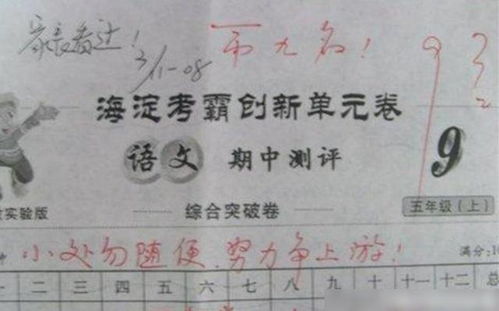 家长看过！
2/11-08
第九名！
93.2
海淀考霸创新单元卷
语文 期中测评
9
实验版
综合突破卷
五年级（上）
小处勿随便，努力争上游！
满分：1
一 二 三 四 五 六 七 八 九 十 十一 十二 总